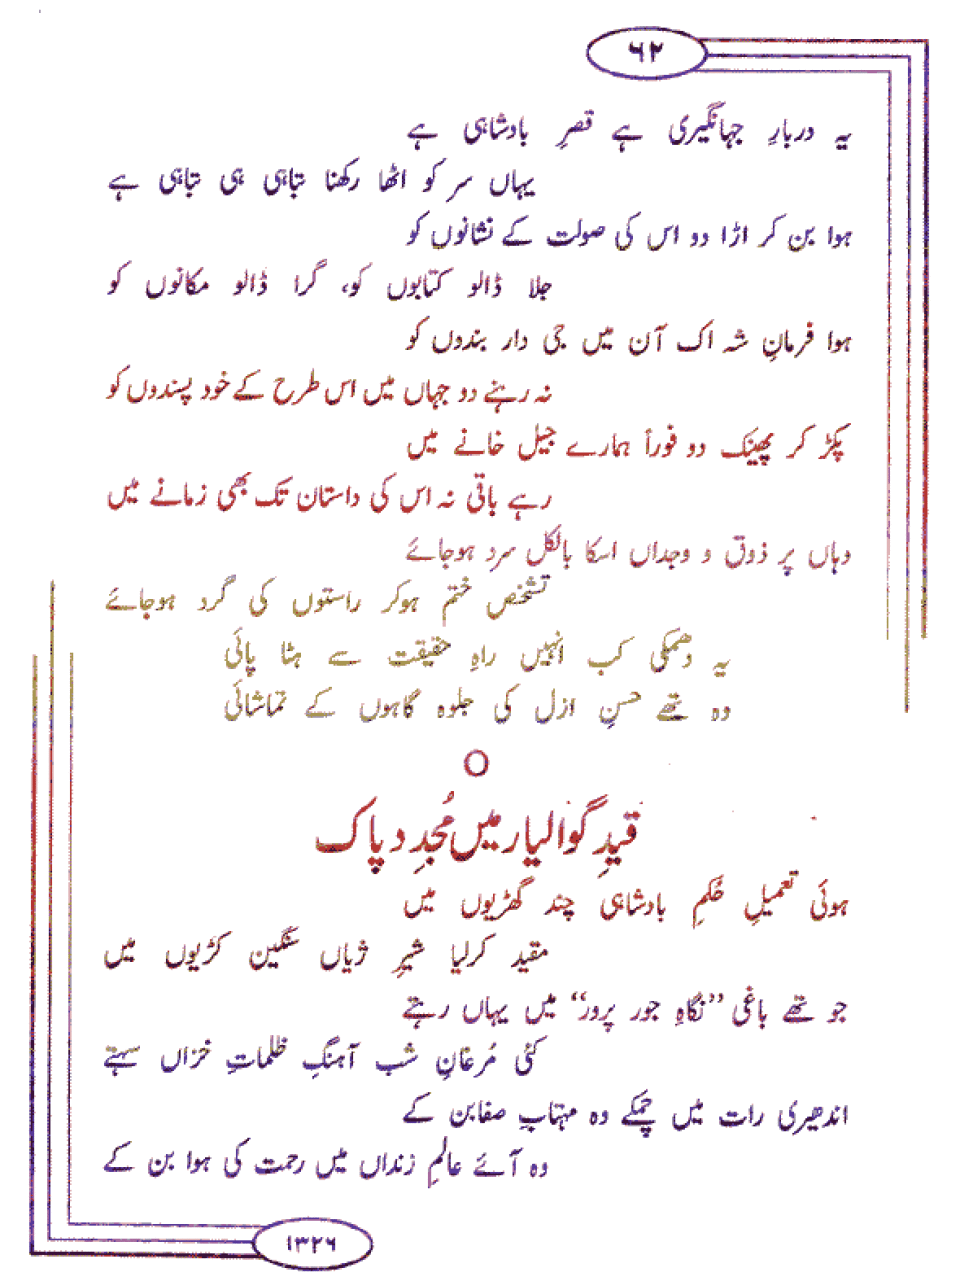 ۶۲
یہ دربارِ جہانگیری ہے قصرِ بادشاہی ہے
یہاں سر کو اٹھا رکھنا تباہی ہی تباہی ہے
ہوا بن کر اڑا دو اس کی صولت کے نشانوں کو
جلا ڈالو کتابوں کو، گرا ڈالو مکانوں کو
ہوا فرمانِ شہ اک آن میں جی دار بندوں کو
نہ رہنے دو جہاں میں اس طرح کے خود پسندوں کو
پکڑ کر پھینک دو فوراً ہمارے جیل خانے میں
رہے باقی نہ اس کی داستان تک بھی زمانے میں
وہاں پر ذوق و وجداں اسکا بالکل سرد ہوجائے
تشخص ختم ہوکر راستوں کی گرد ہوجائے
یہ دھمکی کب انہیں راہِ حقیقت سے ہٹا پائی
وہ تھے حسنِ ازل کی جلوہ گاہوں کے تماشائی
قیدِ گوالیار میں مُجدِد پاک
ہوئی تعمیلِ حُکمِ بادشاہی چند گھڑیوں میں
مقید کرلیا شیرِ ژیاں سنگین کڑیوں میں
جو تھے باغی ”نگاہِ جور پرور“ میں یہاں رہتے
کئی مُرغانِ شب آہنگِ ظلماتِ خزاں سہتے
اندھیری رات میں چمکے وہ مہتابِ صفابن کے
وہ آئے عالمِ زنداں میں رحمت کی ہوا بن کے
۱۳۲۶